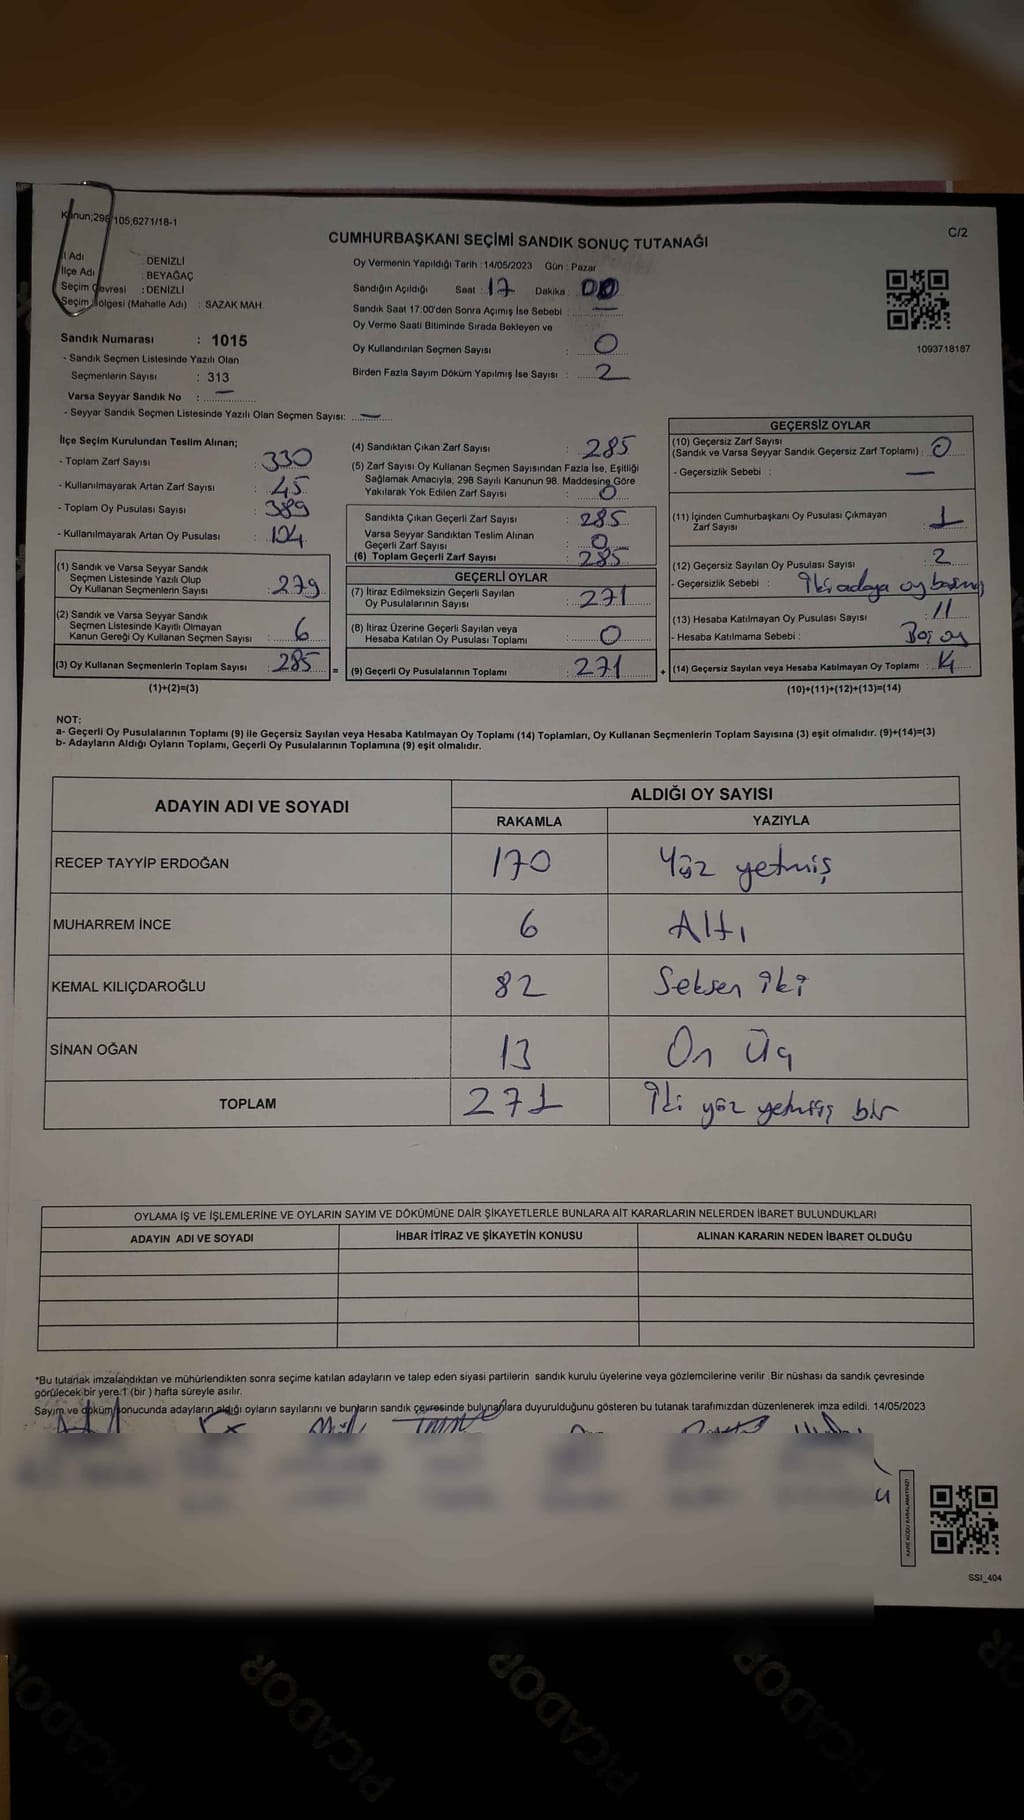 Kanun;298 105,6271/18-1
C/2
CUMHURBAŞKANI SEÇİMİ SANDIK SONUÇ TUTANAĞI
İl Adı : DENİZLİ
İlçe Adı : BEYAĞAÇ
Seçim Çevresi : DENİZLİ
Seçim Bölgesi (Mahalle Adı) : SAZAK MAH.
Sandık Numarası : 1015
- Sandık Seçmen Listesinde Yazılı Olan
Seçmenlerin Sayısı : 313
Varsa Seyyar Sandık No : —
- Seyyar Sandık Seçmen Listesinde Yazılı Olan Seçmen Sayısı: —
Oy Vermenin Yapıldığı Tarih : 14/05/2023 Gün : Pazar
Sandığın Açıldığı Saat : 17 Dakika : 00
Sandık Saat 17:00'den Sonra Açımış İse Sebebi : —
Oy Verme Saati Bitiminde Sırada Bekleyen ve
Oy Kullandırılan Seçmen Sayısı : 0
Birden Fazla Sayım Döküm Yapılmış İse Sayısı : 2
1093718187
İlçe Seçim Kurulundan Teslim Alınan;
- Toplam Zarf Sayısı : 330
- Kullanılmayarak Artan Zarf Sayısı : 45
- Toplam Oy Pusulası Sayısı : 389
- Kullanılmayarak Artan Oy Pusulası : 104
(1) Sandık ve Varsa Seyyar Sandık
Seçmen Listesinde Yazılı Olup
Oy Kullanan Seçmenlerin Sayısı : 279
(2) Sandık ve Varsa Seyyar Sandık
Seçmen Listesinde Kayıtlı Olmayan
Kanun Gereği Oy Kullanan Seçmen Sayısı : 6
(3) Oy Kullanan Seçmenlerin Toplam Sayısı : 285 =
(1)+(2)=(3)
(4) Sandıktan Çıkan Zarf Sayısı : 285
(5) Zarf Sayısı Oy Kullanan Seçmen Sayısından Fazla İse, Eşitliği
Sağlamak Amacıyla, 298 Sayılı Kanunun 98. Maddesine Göre
Yakılarak Yok Edilen Zarf Sayısı : 0
Sandıkta Çıkan Geçerli Zarf Sayısı : 285
Varsa Seyyar Sandıktan Teslim Alınan
Geçerli Zarf Sayısı : 0
(6) Toplam Geçerli Zarf Sayısı : 285
GEÇERLİ OYLAR
(7) İtiraz Edilmeksizin Geçerli Sayılan
Oy Pusulalarının Sayısı : 271
(8) İtiraz Üzerine Geçerli Sayılan veya
Hesaba Katılan Oy Pusulası Toplamı : 0
(9) Geçerli Oy Pusulalarının Toplamı : 271 +
GEÇERSİZ OYLAR
(10) Geçersiz Zarf Sayısı
(Sandık ve Varsa Seyyar Sandık Geçersiz Zarf Toplamı) : 0
- Geçersizlik Sebebi : —
(11) İçinden Cumhurbaşkanı Oy Pusulası Çıkmayan
Zarf Sayısı : 1
(12) Geçersiz Sayılan Oy Pusulası Sayısı : 2
- Geçersizlik Sebebi : İki adaya oy
(13) Hesaba Katılmayan Oy Pusulası Sayısı : 11
- Hesaba Katılmama Sebebi : Boş oy
(14) Geçersiz Sayılan veya Hesaba Katılmayan Oy Toplamı : 14
(10)+(11)+(12)+(13)=(14)
NOT:
a- Geçerli Oy Pusulalarının Toplamı (9) ile Geçersiz Sayılan veya Hesaba Katılmayan Oy Toplamı (14) Toplamları, Oy Kullanan Seçmenlerin Toplam Sayısına (3) eşit olmalıdır. (9)+(14)=(3)
b- Adayların Aldığı Oyların Toplamı, Geçerli Oy Pusulalarının Toplamına (9) eşit olmalıdır.
ADAYIN ADI VE SOYADI ALDIĞI OY SAYISI
RAKAMLA YAZIYLA
RECEP TAYYİP ERDOĞAN 170 Yüz yetmiş
MUHARREM İNCE 6 Altı
KEMAL KILIÇDAROĞLU 82 Seksen iki
SİNAN OĞAN 13 On Üç
TOPLAM 271 İki yüz yetmiş bir
OYLAMA İŞ VE İŞLEMLERİNE VE OYLARIN SAYIM VE DÖKÜMÜNE DAİR ŞİKAYETLERLE BUNLARA AİT KARARLARIN NELERDEN İBARET BULUNDUKLARI
ADAYIN ADI VE SOYADI İHBAR İTİRAZ VE ŞİKAYETİN KONUSU ALINAN KARARIN NEDEN İBARET OLDUĞU
*Bu tutanak imzalandıktan ve mühürlendikten sonra seçime katılan adayların ve talep eden siyasi partilerin sandık kurulu üyelerine veya gözlemcilerine verilir .Bir nüshası da sandık çevresinde
görülecek bir yere 1 (bir ) hafta süreyle asılır.
Sayım ve döküm sonucunda adayların aldığı oyların sayılarını ve bunların sandık çevresinde bulunanlara duyurulduğunu gösteren bu tutanak tarafımızdan düzenlenerek imza edildi. 14/05/2023
KARE KODU KARALAMAYINIZ!
SSI_404
PICADOR PICADOR PICADOR PICADOR